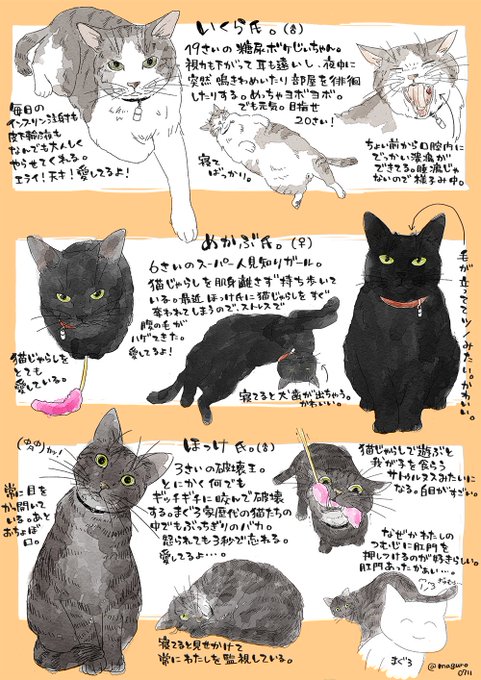 いくら氏。(♂)
19さいの糖尿ボケじいちゃん。
視力も下がって耳も遠いし、夜中に
突然鳴きわめいたり部屋を徘徊
したりする。めっちゃヨボヨボ。
でも元気。目指せ
20さい!
毎日の
インスリン注射も
皮下輸液も
なんでも大人しく
やらせてくれる。
エライ!天才!愛してるよ!
寝て
ばっかり。
ちょい前から口腔内に
でっかい潰瘍が
できてる。腫瘍じゃ
ないので様子み中。
めかぶ氏。(♀)
6さいのスーパー人見知りガール。
猫じゃらしを肌身離さず持ち歩いて
いる。最近ほっけ氏に猫じゃらしをすぐ
奪われてしまうので、ストレスで
腹の毛が
ハゲてきた。
愛してるよ!
猫じゃらしを
とても
愛している。
寝てると犬歯が出ちゃう。
かわいい。
毛が立っててツノみたい。かわいい。
ほっけ氏(♂)
3さいの破壊王。
とにかく何でも
ギッチギチに咬んで破壊
する。まぐろ家歴代の猫たちの
中でもぶっちぎりのバカ。
怒られても3秒で忘れる。
愛してるよ…。
カッ!
常に目を
かっ開いて
いる。あと
おちょぼ
口。
猫じゃらしで遊ぶと
我が子を食らう
サトゥルヌスみたいに
なる。白目がすごい。
なぜかわたしの
つむじに肛門を
押しつけるのが好きらしい。
肛門あったかぁい…。
寝てると見せかけて
常にわたしを監視している。
まぐろ
@maguro
0711